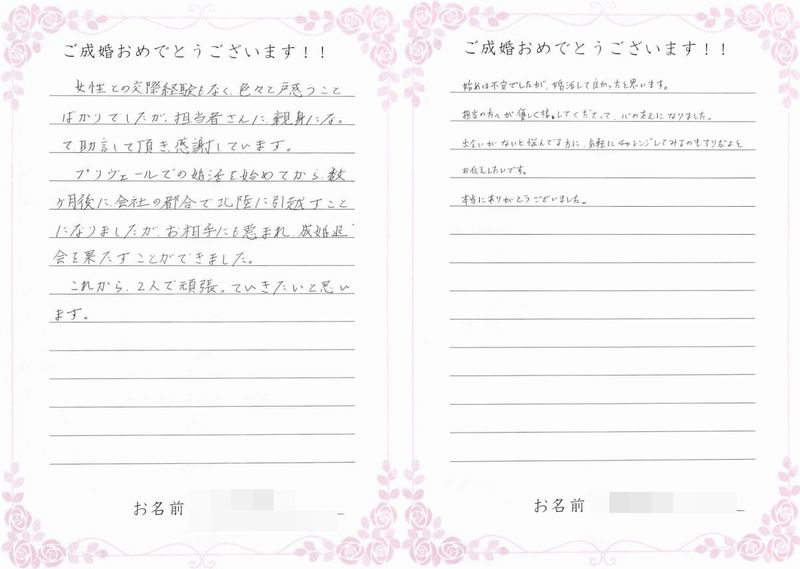 ご成婚おめでとうございます！！
女性との交際経験もなく、色々と戸惑うこと
ばかりでしたが、担当者さんに親身になっ
て助言して頂き感謝しています。
プリヴェールでの婚活を始めてから、数
ヶ月後に会社の都合で北陸に引越すこと
になりましたが、お相手にも恵まれ、成婚退
会を果たすことができました。
これから、2人で頑張っていきたいと思い
ます。
お名前
ご成婚おめでとうございます！！
始めは不安でしたが、婚活して良かったと思います。
担当の方が優しく接してくださって、心の支えになりました。
出会いがないと悩んでる方に、気軽にチャレンジしてみるのもアリだよと
お伝えしたいです。
本当にありがとうございました。
お名前